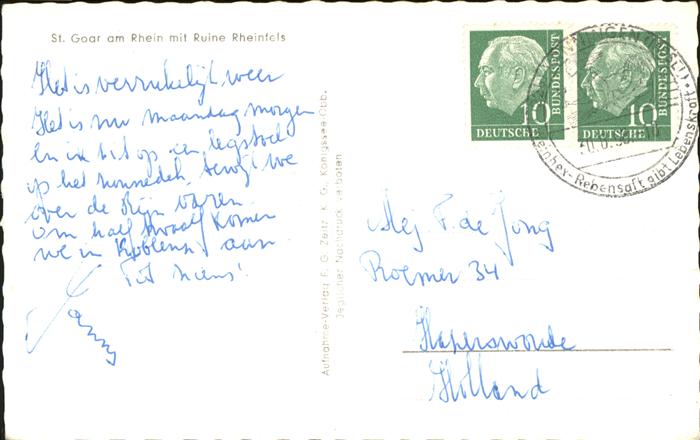 St. Goar am Rhein mit Ruine Rheinfels
Het is verrukelijk weer
Het is nu maandag morgen
en ik zit op een legstoel
op het zonnedek terwijl we
over de Rijn varen
om half twaalf komen
we in Koblenz aan
Tot ziens!
Aufnahme-Verlag F. G. Zeitz K. G., Königssee-Obb.
Jeglicher Nachdruck verboten
10
DEUTSCHE
BUNDESPOST
10
DEUTSCHE
BUNDESPOST
Rebensaft gibt Lebenskraft
Mej. F. de Jong
Roemer 34
Haperswoude
Holland